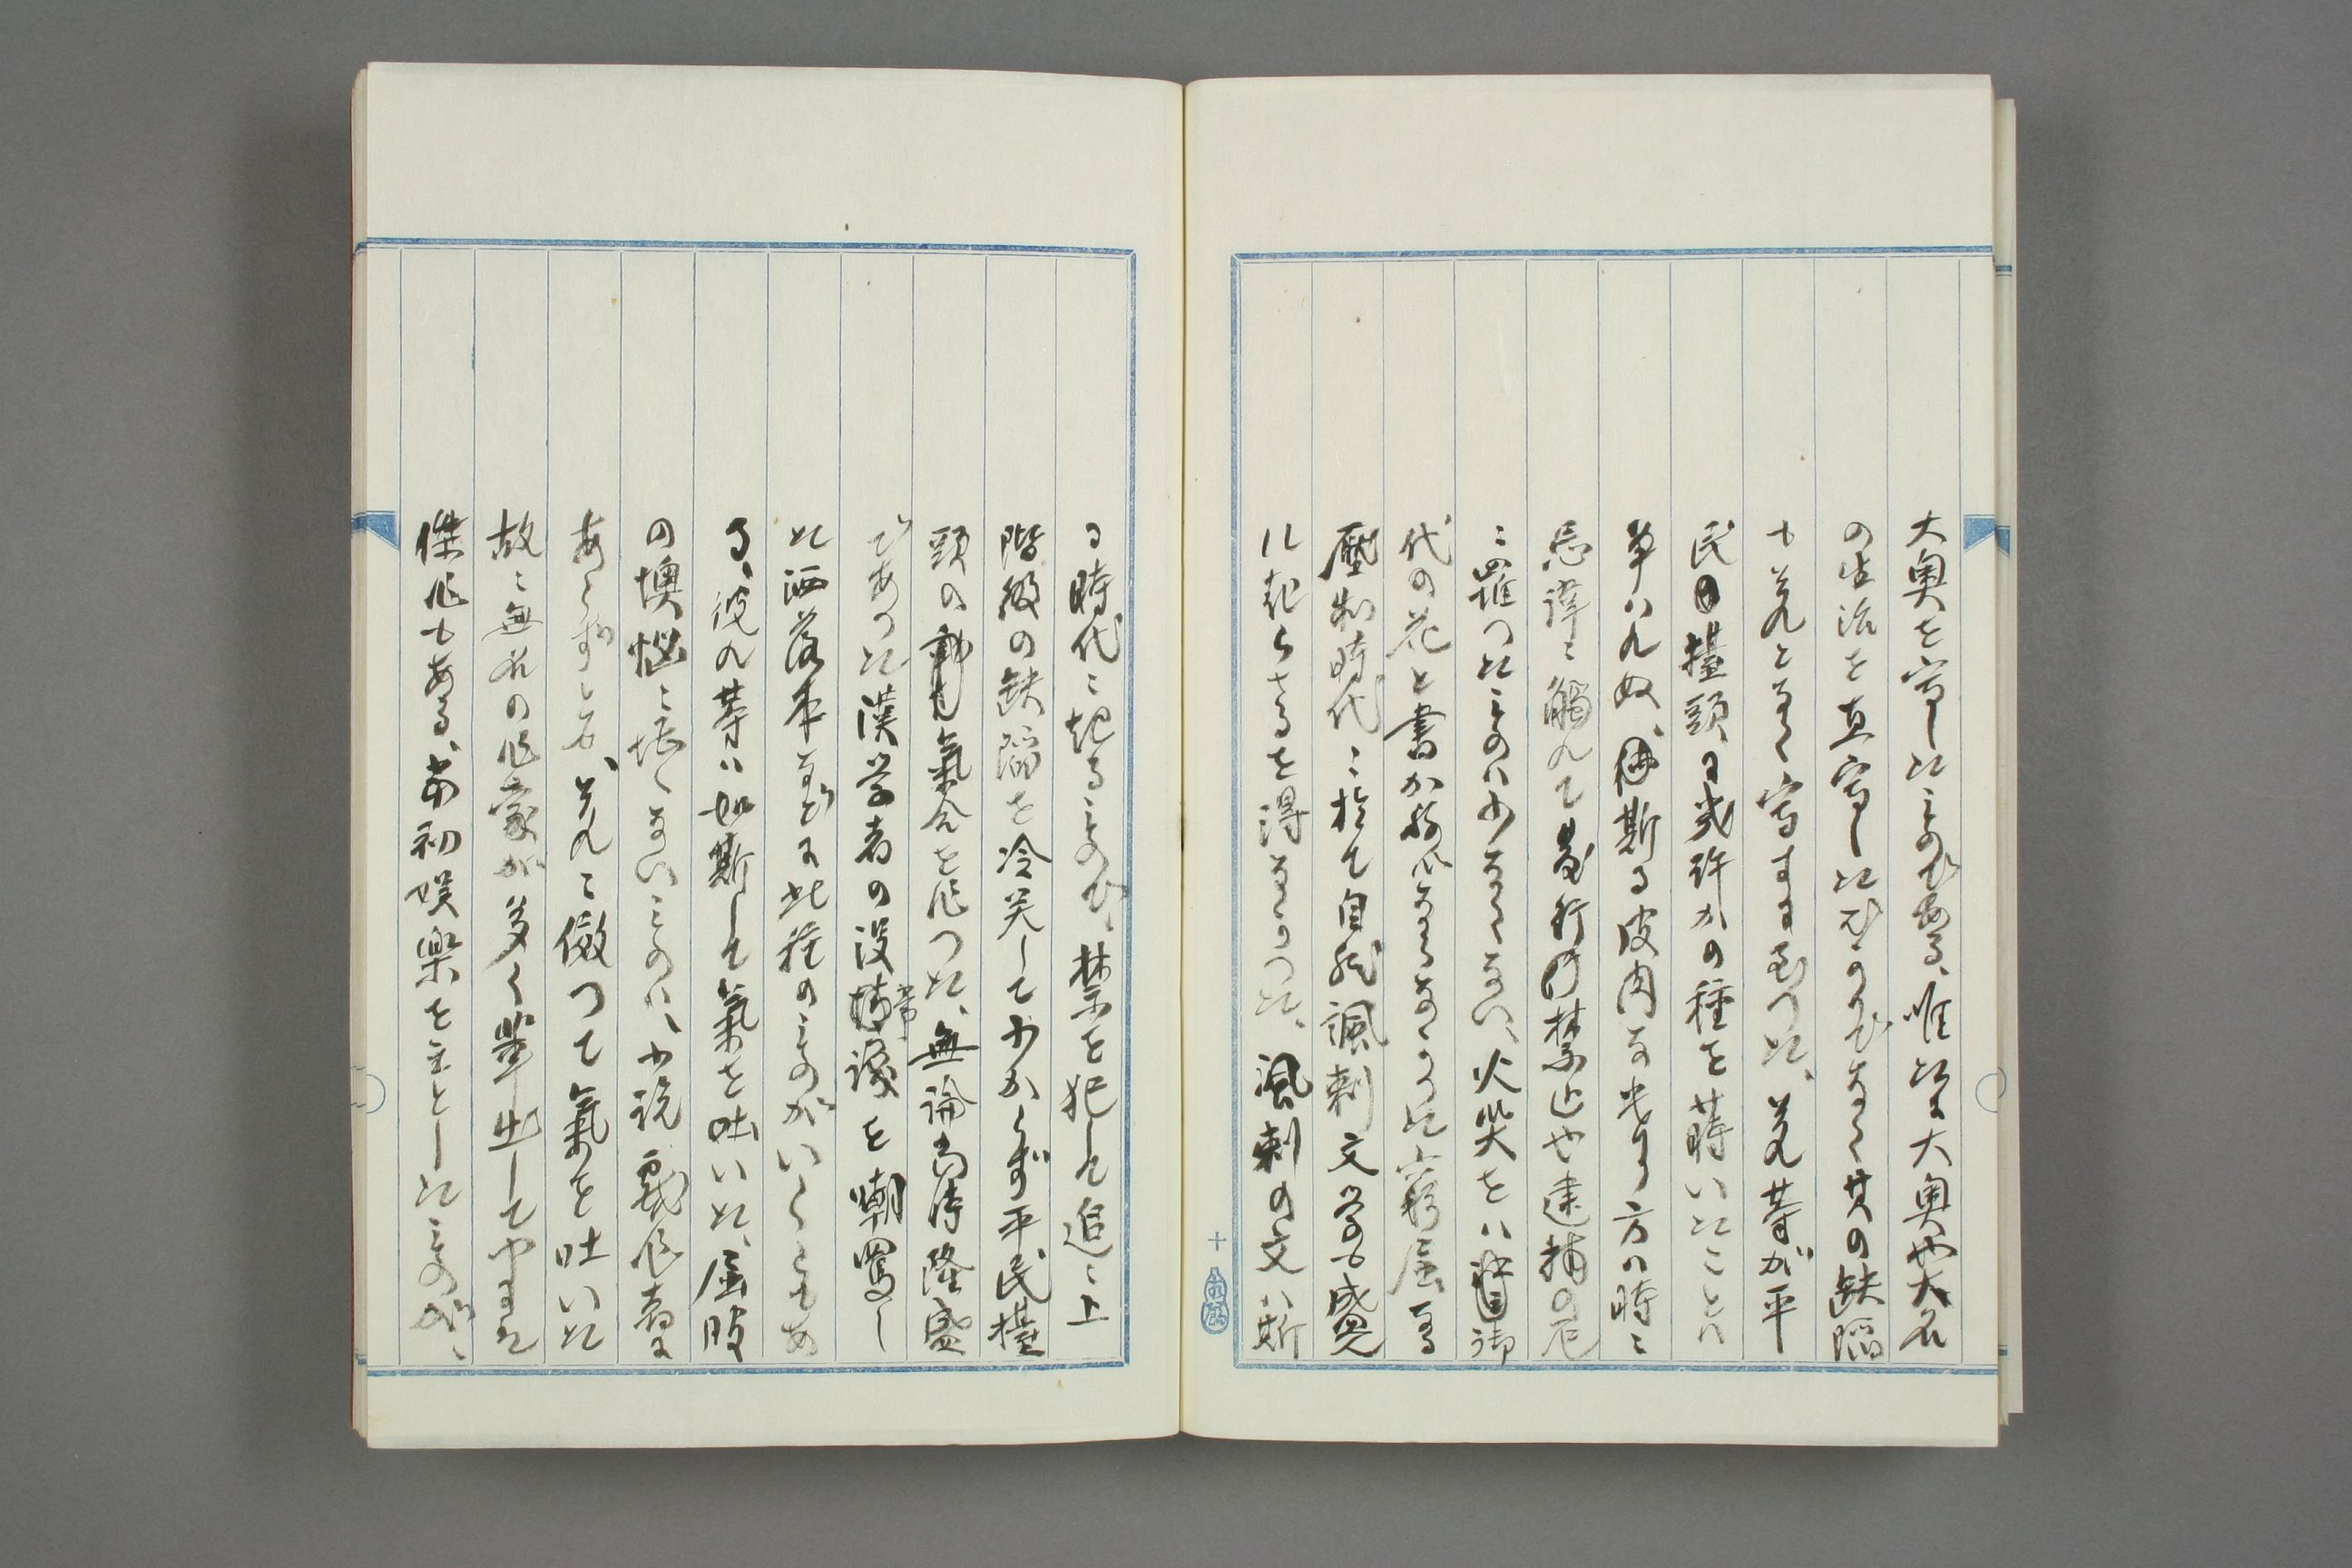 大奥を寫したものである、唯だに大奥や大名
の生活を直寫したばかりでなく其の缺陥
も先となく寫すに至つた、是等が平
民の擡頭に幾許かの種を蒔いたことは
争はれぬ、併斯る皮肉な書き方は時に
忌諱に觸れて発行の禁止や逮捕の厄
に罹つたものは少なくない、火災をは御
代の花と書かねばならなかつた窮屈なる
壓制時代に於て自然諷刺文学は盛
に起らざるを得なかつた、諷刺の文は斯
る時代に起るもので、禁を犯して迄に上
階級の缺陥を冷笑して少からず平民擡
頭の動も氣合を作つた、無論当時隆盛
であつた漢学者の没常識を嘲罵し
た洒落本などに此種のものがいくらもあ
る、彼れ等は如斯して氣を吐いた、屈服
の懊悩に堪へないものは、小説戯作者に
あらずとも、それに倣つて氣を吐いた
故に無名の作家が多く輩出してやまた
傑作もある、当初娯楽を主としたものが、
十